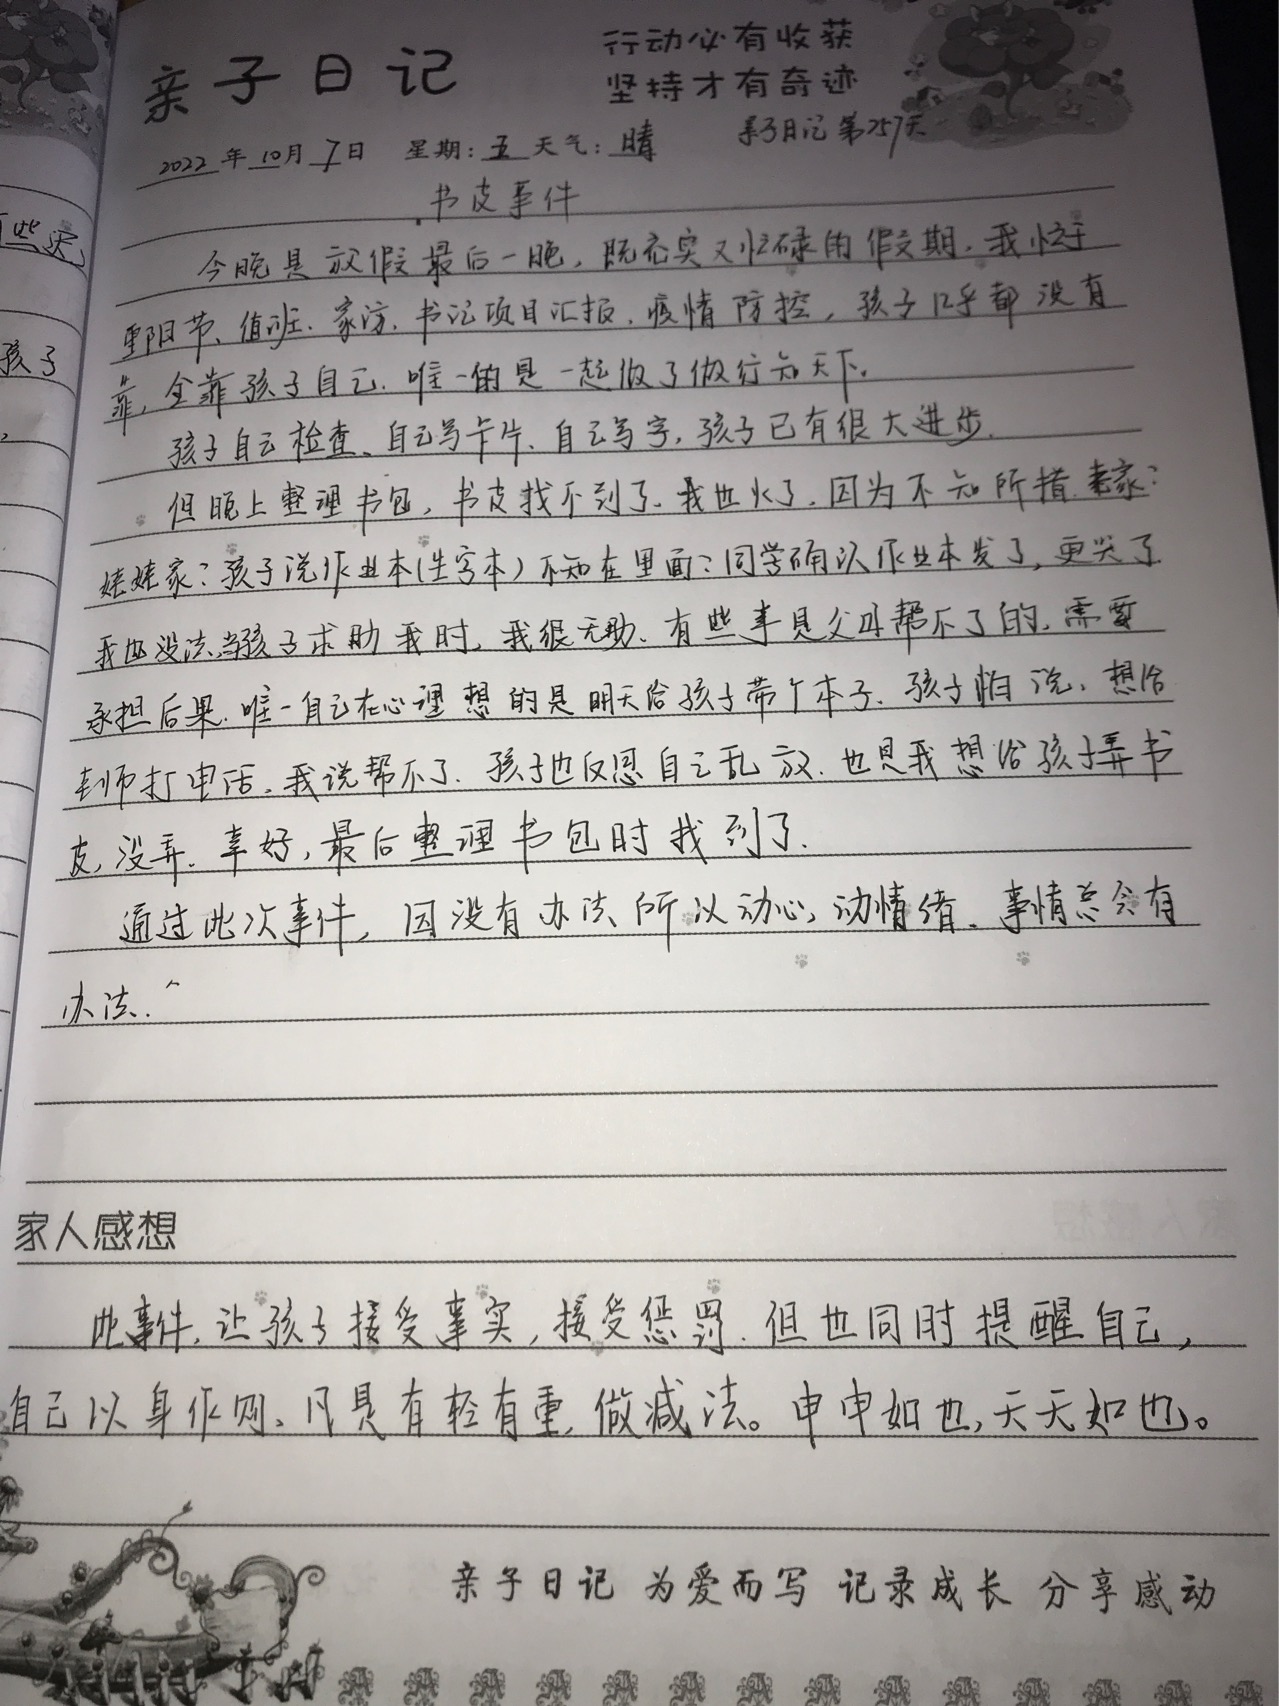 亲子日记
行动必有收获
坚持才有奇迹
亲子日记第257天
2022年10月7日 星期:五 天气:晴
书皮事件
今晚是放假最后一晚,既充实又忙碌的假期.我忙于
重阳节、值班、家访、书记项目汇报、疫情防控,孩子几乎都没有
"靠,全靠孩子自己.唯一的是一起做了做行知天下。
孩子自己检查、自己写卡片、自己写字,孩子已有很大进步.
但晚上整理书包,书皮找不到了.我也火了.因为不知所措.老家?
姥姥家?孩子说作业本(生字本)不知在里面?同学确认作业本发了,更哭了
我也没法.当孩子求助我时,我很无助.有些事是父母帮不了的,需要
承担后果.唯一自己在心理想的是明天给孩子带个本子.孩子怕说,想给
老师打电话,我说帮不了.孩子也反思自己乱放.也是我想给孩子弄书
皮,没弄.幸好,最后整理书包时找到了.
通过此次事件,因没有办法所以动心,动情绪.事情总会有
办法.
家人感想
此事件,让孩子接受事实,接受惩罚.但也同时提醒自己,
自己以身作则、凡是有轻有重,做减法。申申如也,夭夭如也。
亲子日记 为爱而写 记录成长 分享感动
有些哭,
孩子